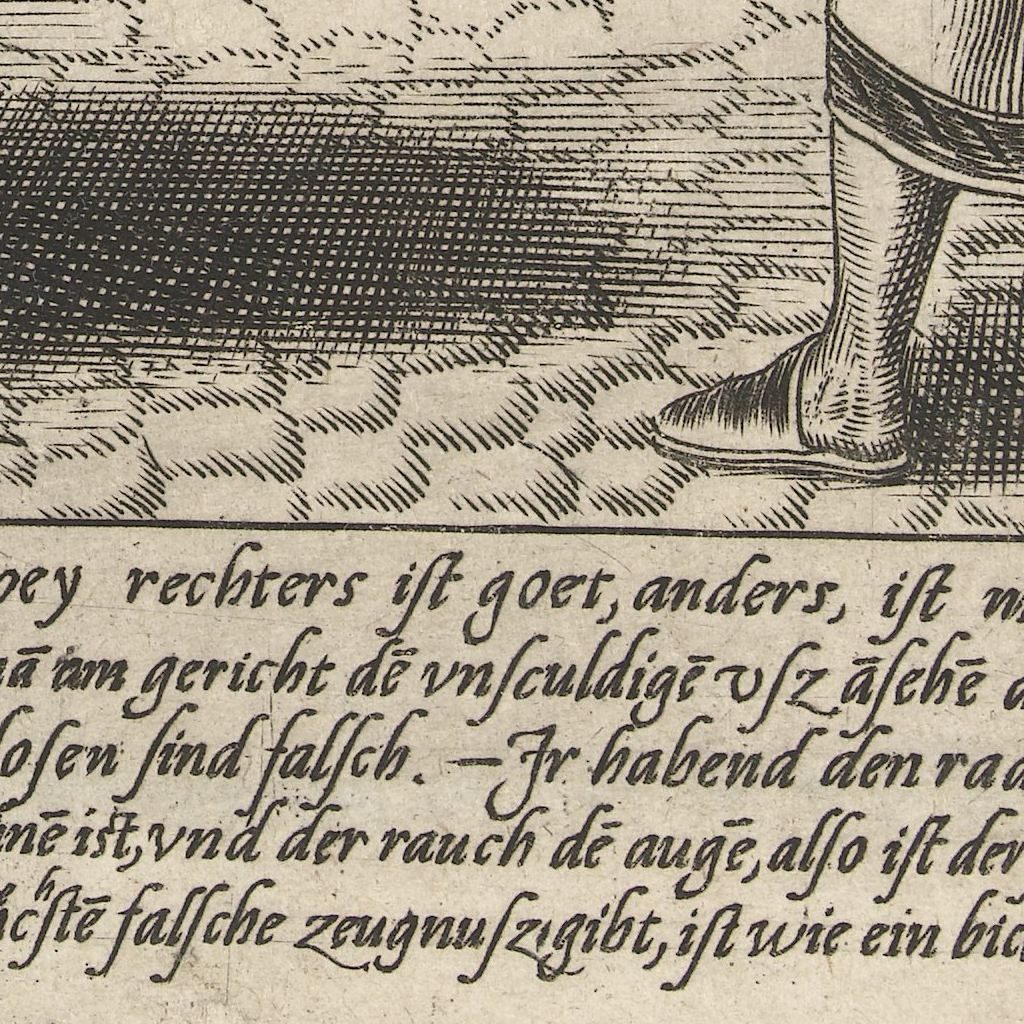 rechters iſt goet, anders, iſt
am gericht dē vnſculdigē vſz āſehē
ſind falſch. – Jr habend den
iſt, vnd der rauch dē augē, alſo iſt der
falſche zeugnuſz gibt, iſt wie ein